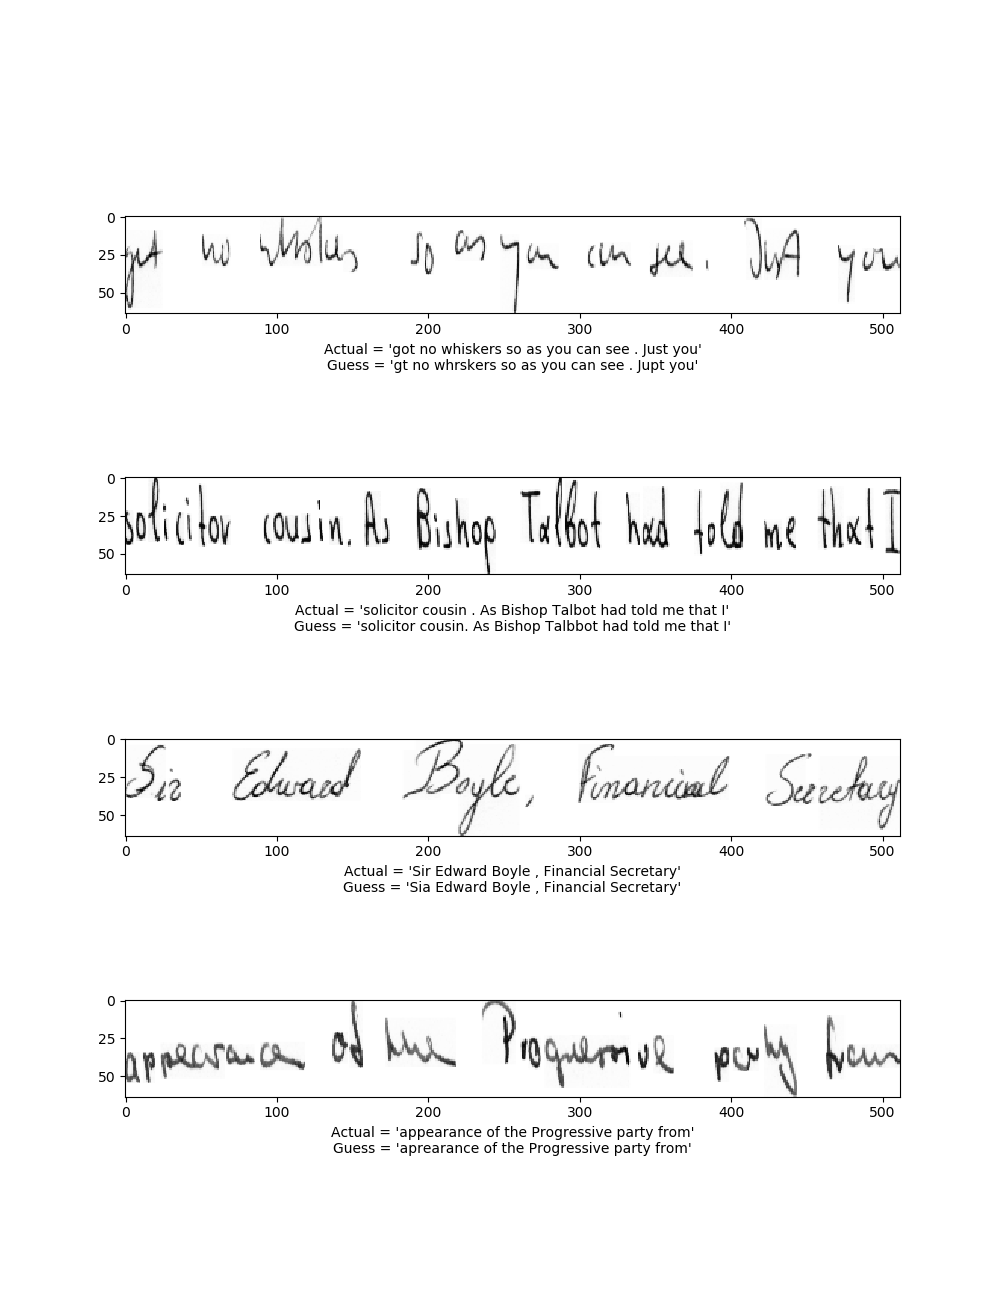 0
25
50
got no whiskers so as you can see. Just you
0 100 200 300 400 500
Actual = 'got no whiskers so as you can see . Just you'
Guess = 'gt no whrskers so as you can see . Jupt you'
0
25
50
solicitor cousin. As Bishop Talbot had told me that I
0 100 200 300 400 500
Actual = 'solicitor cousin . As Bishop Talbot had told me that I'
Guess = 'solicitor cousin. As Bishop Talbbot had told me that I'
0
25
50
Sir Edward Boyle, Financial Secretary
0 100 200 300 400 500
Actual = 'Sir Edward Boyle , Financial Secretary'
Guess = 'Sia Edward Boyle , Financial Secretary'
0
25
50
appearance of the Progressive party from
0 100 200 300 400 500
Actual = 'appearance of the Progressive party from'
Guess = 'aprearance of the Progressive party from'